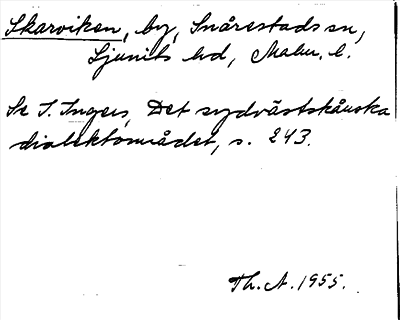 Skarviken, by, Snårestads sn,
Ljunits hd, Malm. l.
Se I. Ingers, Det sydvästskånska
dialektområdet, s. 243.
Th. A. 1955.